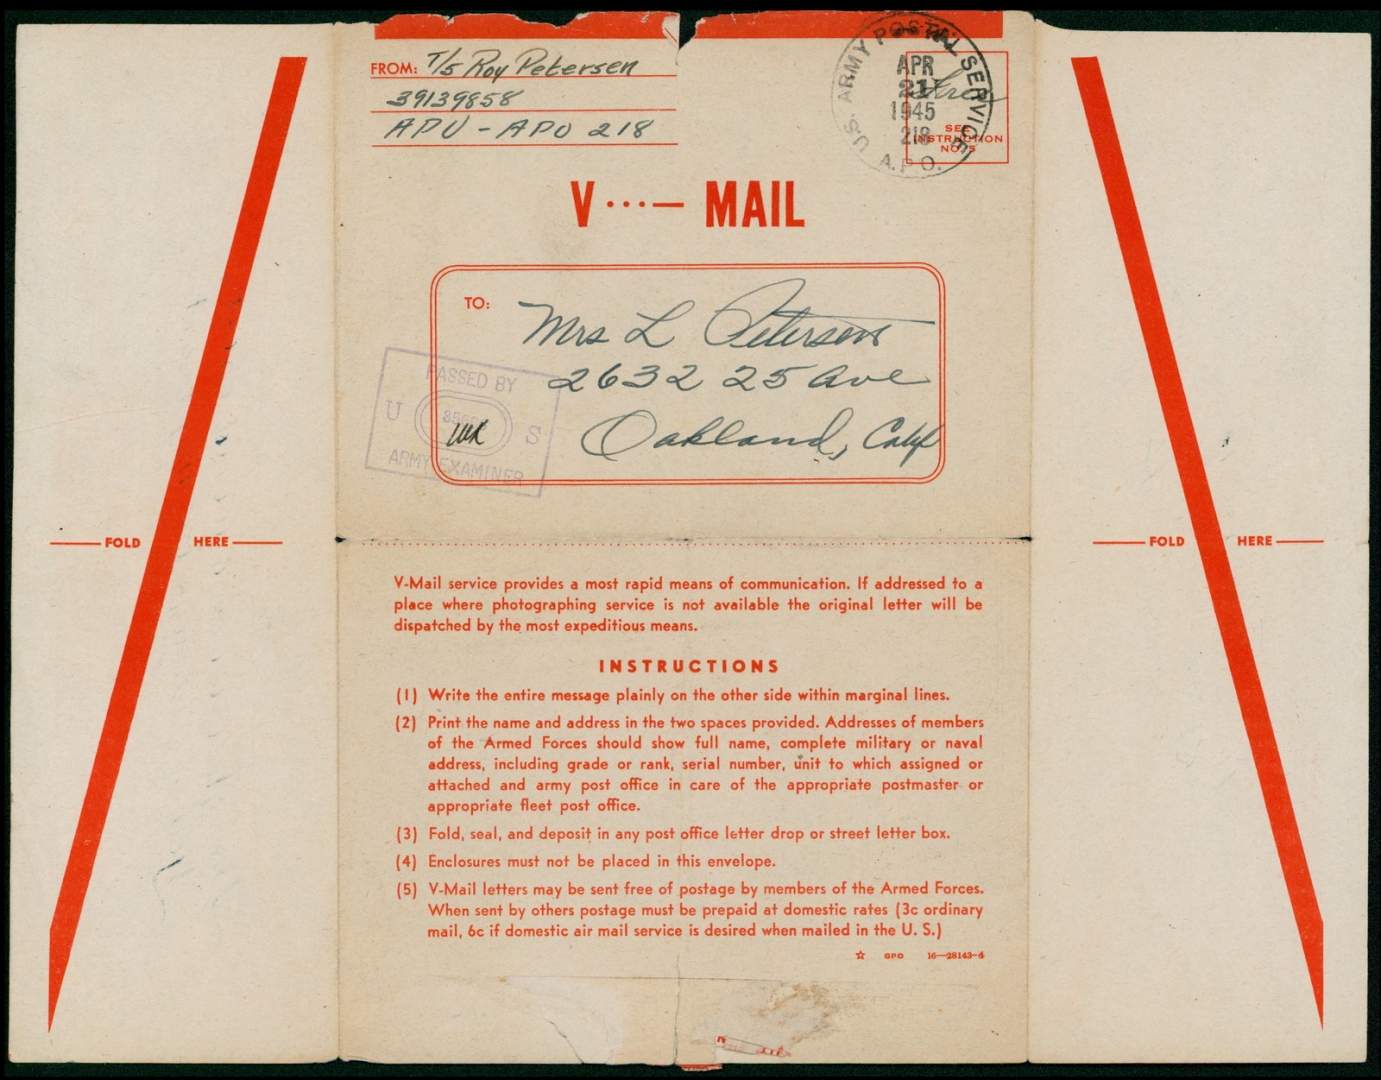 FROM: T/5 Roy Petersen
39139858
APU - APO 218
U.S. ARMY POSTAL SERVICE
APR
21
1945
218
A.P.O.
Free
SEE
INSTRUCTION
NO. 5
V...— MAIL
TO: Mrs L Petersen
2632 25 Ave
Oakland, Calif
PASSED BY
U S
ARMY EXAMINER
FOLD HERE
FOLD HERE
V-Mail service provides a most rapid means of communication. If addressed to a
place where photographing service is not available the original letter will be
dispatched by the most expeditious means.
INSTRUCTIONS
(1) Write the entire message plainly on the other side within marginal lines.
(2) Print the name and address in the two spaces provided. Addresses of members
of the Armed Forces should show full name, complete military or naval
address, including grade or rank, serial number, unit to which assigned or
attached and army post office in care of the appropriate postmaster or
appropriate fleet post office.
(3) Fold, seal, and deposit in any post office letter drop or street letter box.
(4) Enclosures must not be placed in this envelope.
(5) V-Mail letters may be sent free of postage by members of the Armed Forces.
When sent by others postage must be prepaid at domestic rates (3c ordinary
mail, 6c if domestic air mail service is desired when mailed in the U. S.)
☆ GPO 16—28143-4